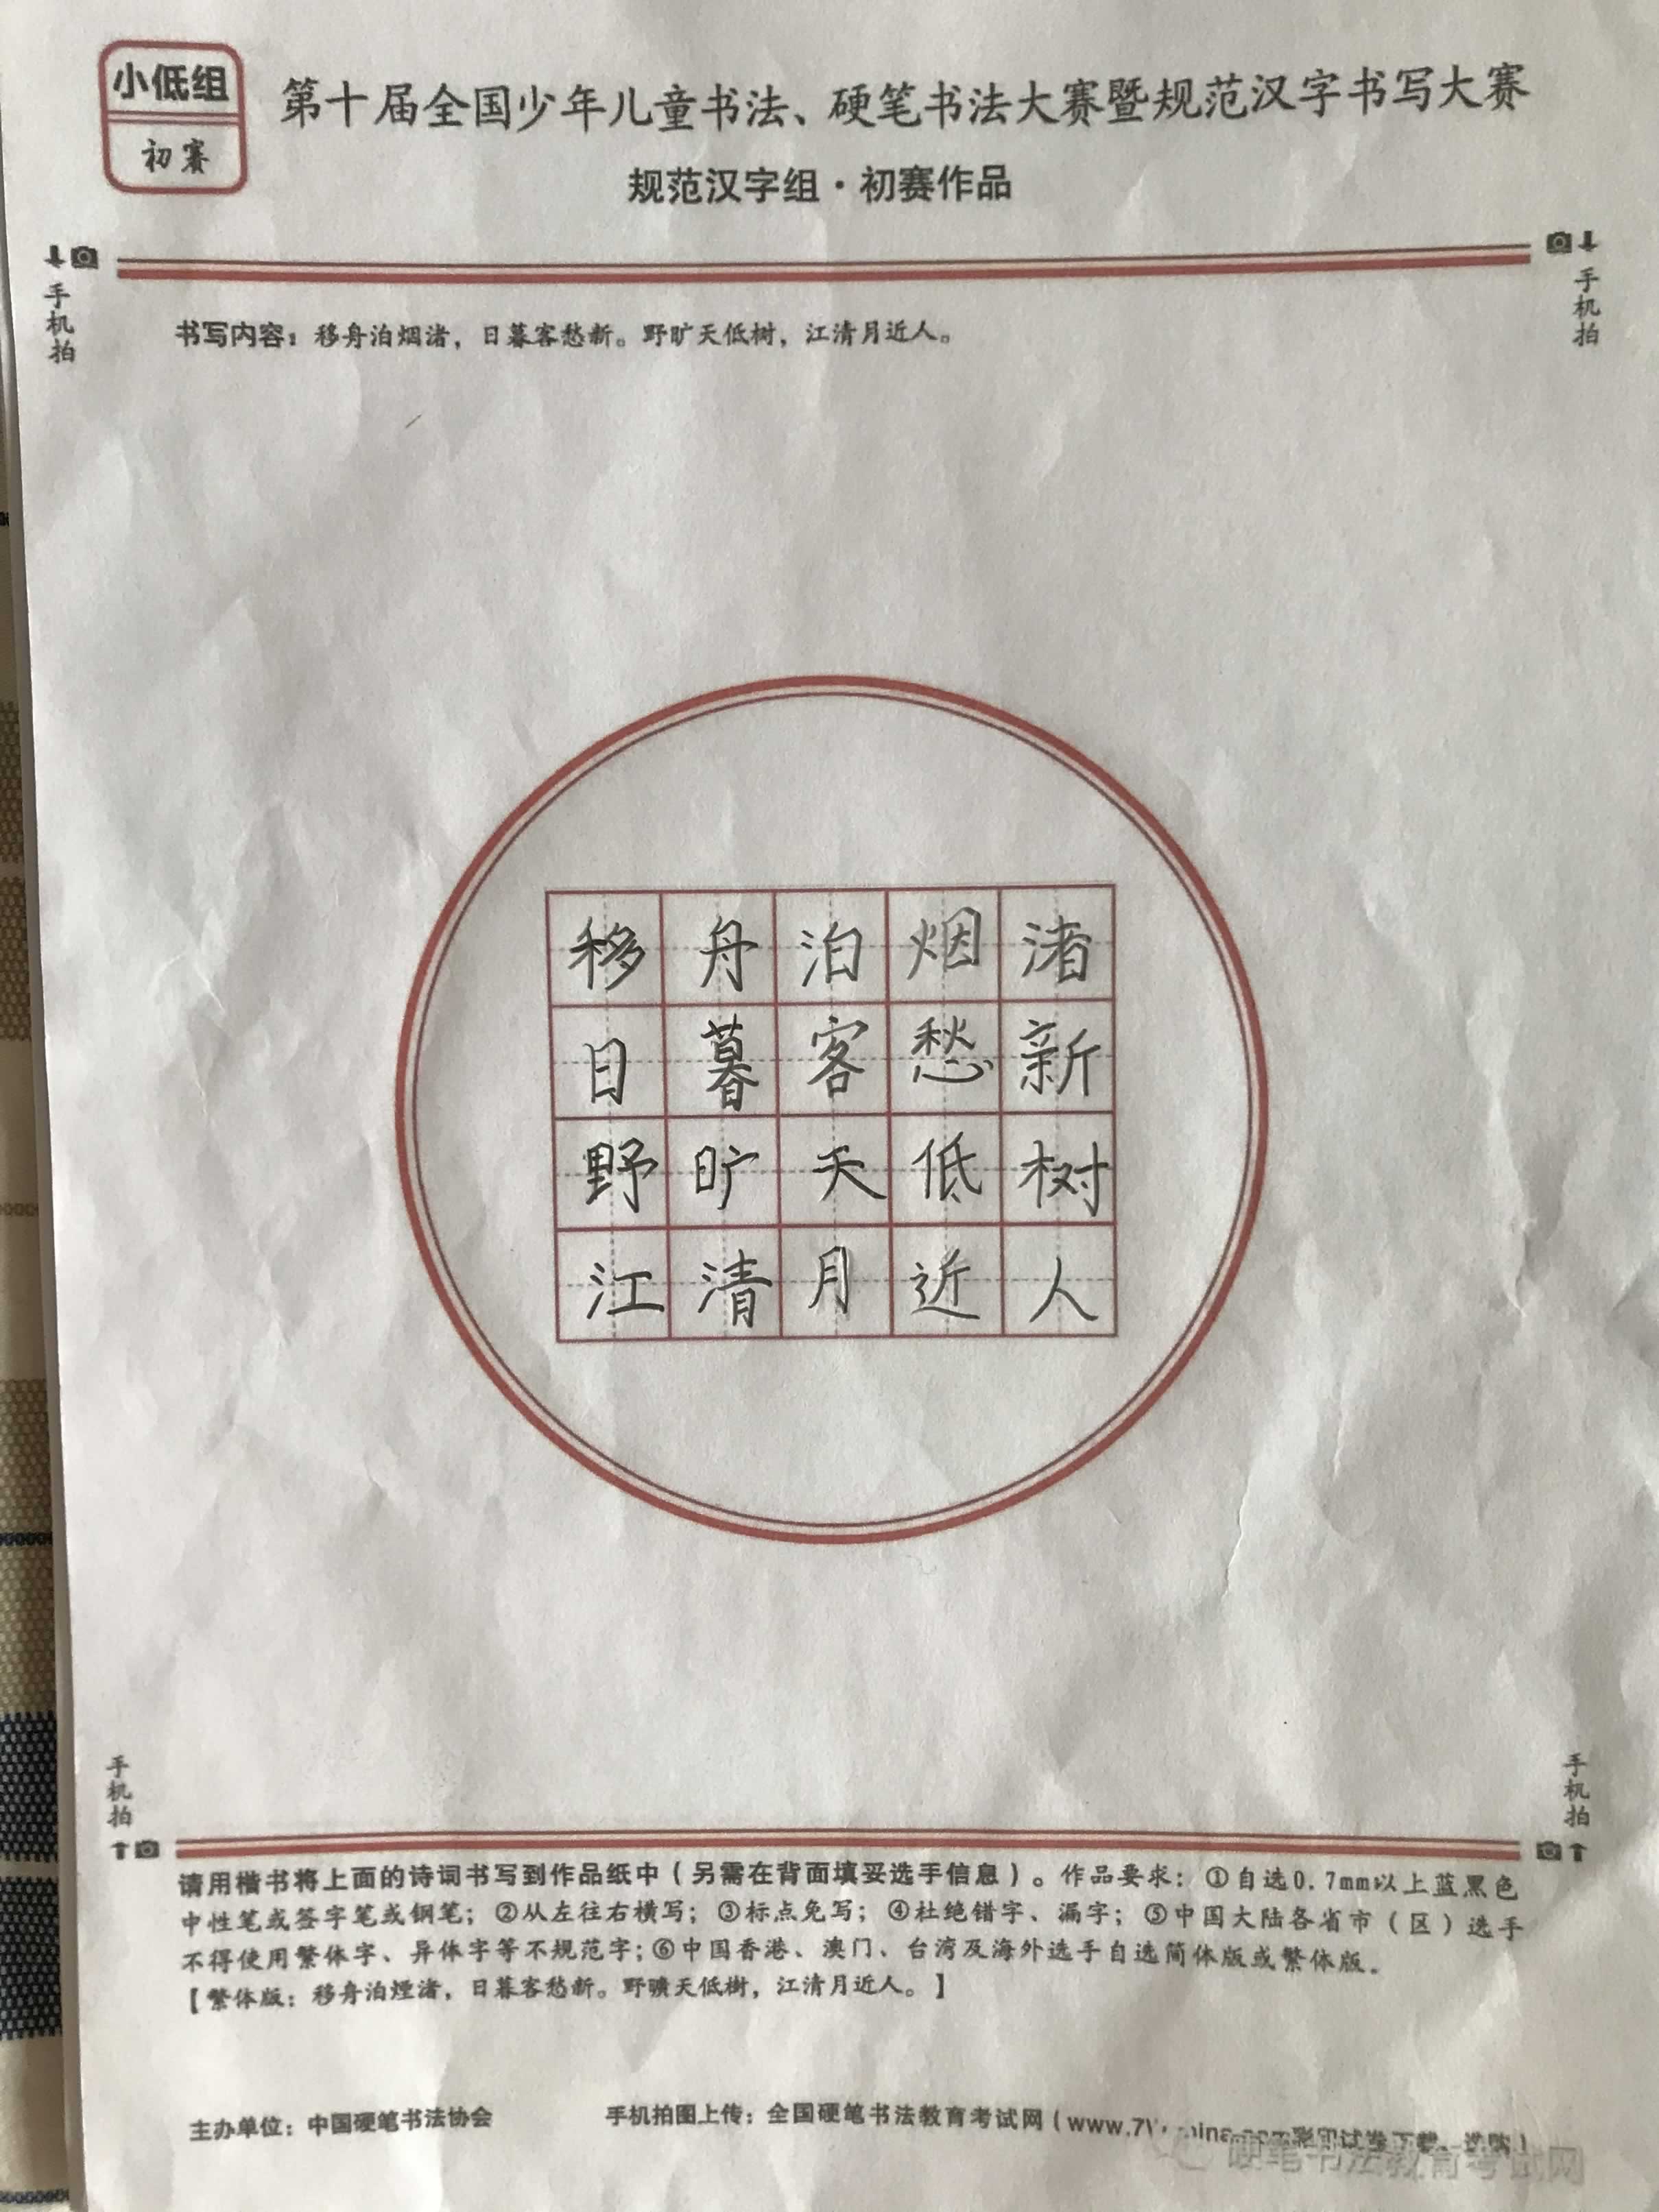 小低组
初赛
第十届全国少年儿童书法、硬笔书法大赛暨规范汉字书写大赛
规范汉字组·初赛作品
手机拍
手机拍
书写内容：移舟泊烟渚，日暮客愁新。野旷天低树，江清月近人。
移舟泊烟渚
日暮客愁新
野旷天低树
江清月近人
手机拍
手机拍
请用楷书将上面的诗词书写到作品纸中（另需在背面填妥选手信息）。作品要求：①自选0.7mm以上蓝黑色
中性笔或签字笔或钢笔；②从左往右横写；③标点免写；④杜绝错字、漏字；⑤中国大陆各省市（区）选手
不得使用繁体字、异体字等不规范字；⑥中国香港、澳门、台湾及海外选手自选简体版或繁体版．
【繁体版：移舟泊煙渚，日暮客愁新。野曠天低樹，江清月近人。】
主办单位：中国硬笔书法协会
手机拍图上传：全国硬笔书法教育考试网（www.7
硬笔书法教育考试网